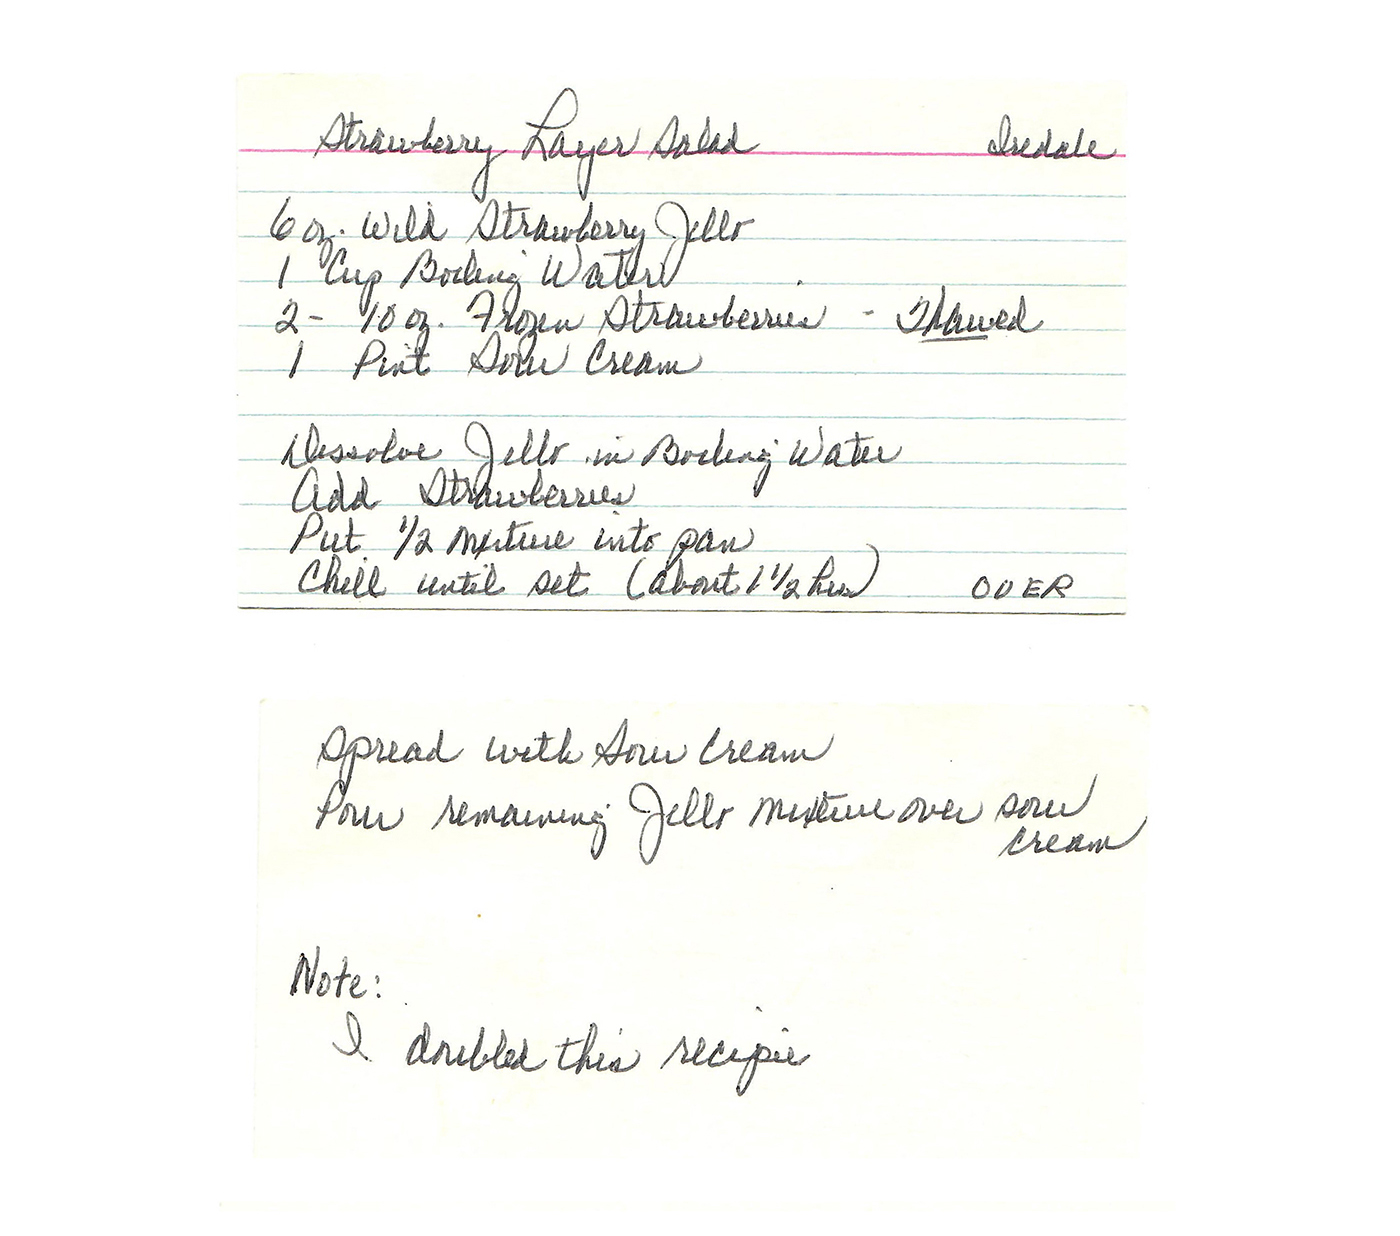 Strawberry Layer Salad Iredale
6 oz. Wild Strawberry Jello
1 Cup Boiling Water
2 - 10 oz. Frozen Strawberries - Thawed
1 Pint Sour Cream
Dissolve Jello in Boiling Water
Add Strawberries
Put 1/2 mixture into pan
Chill until set (about 1 1/2 hrs) OVER
Spread with Sour Cream
Pour remaining Jello mixture over sour
cream
Note:
I doubled this recipie